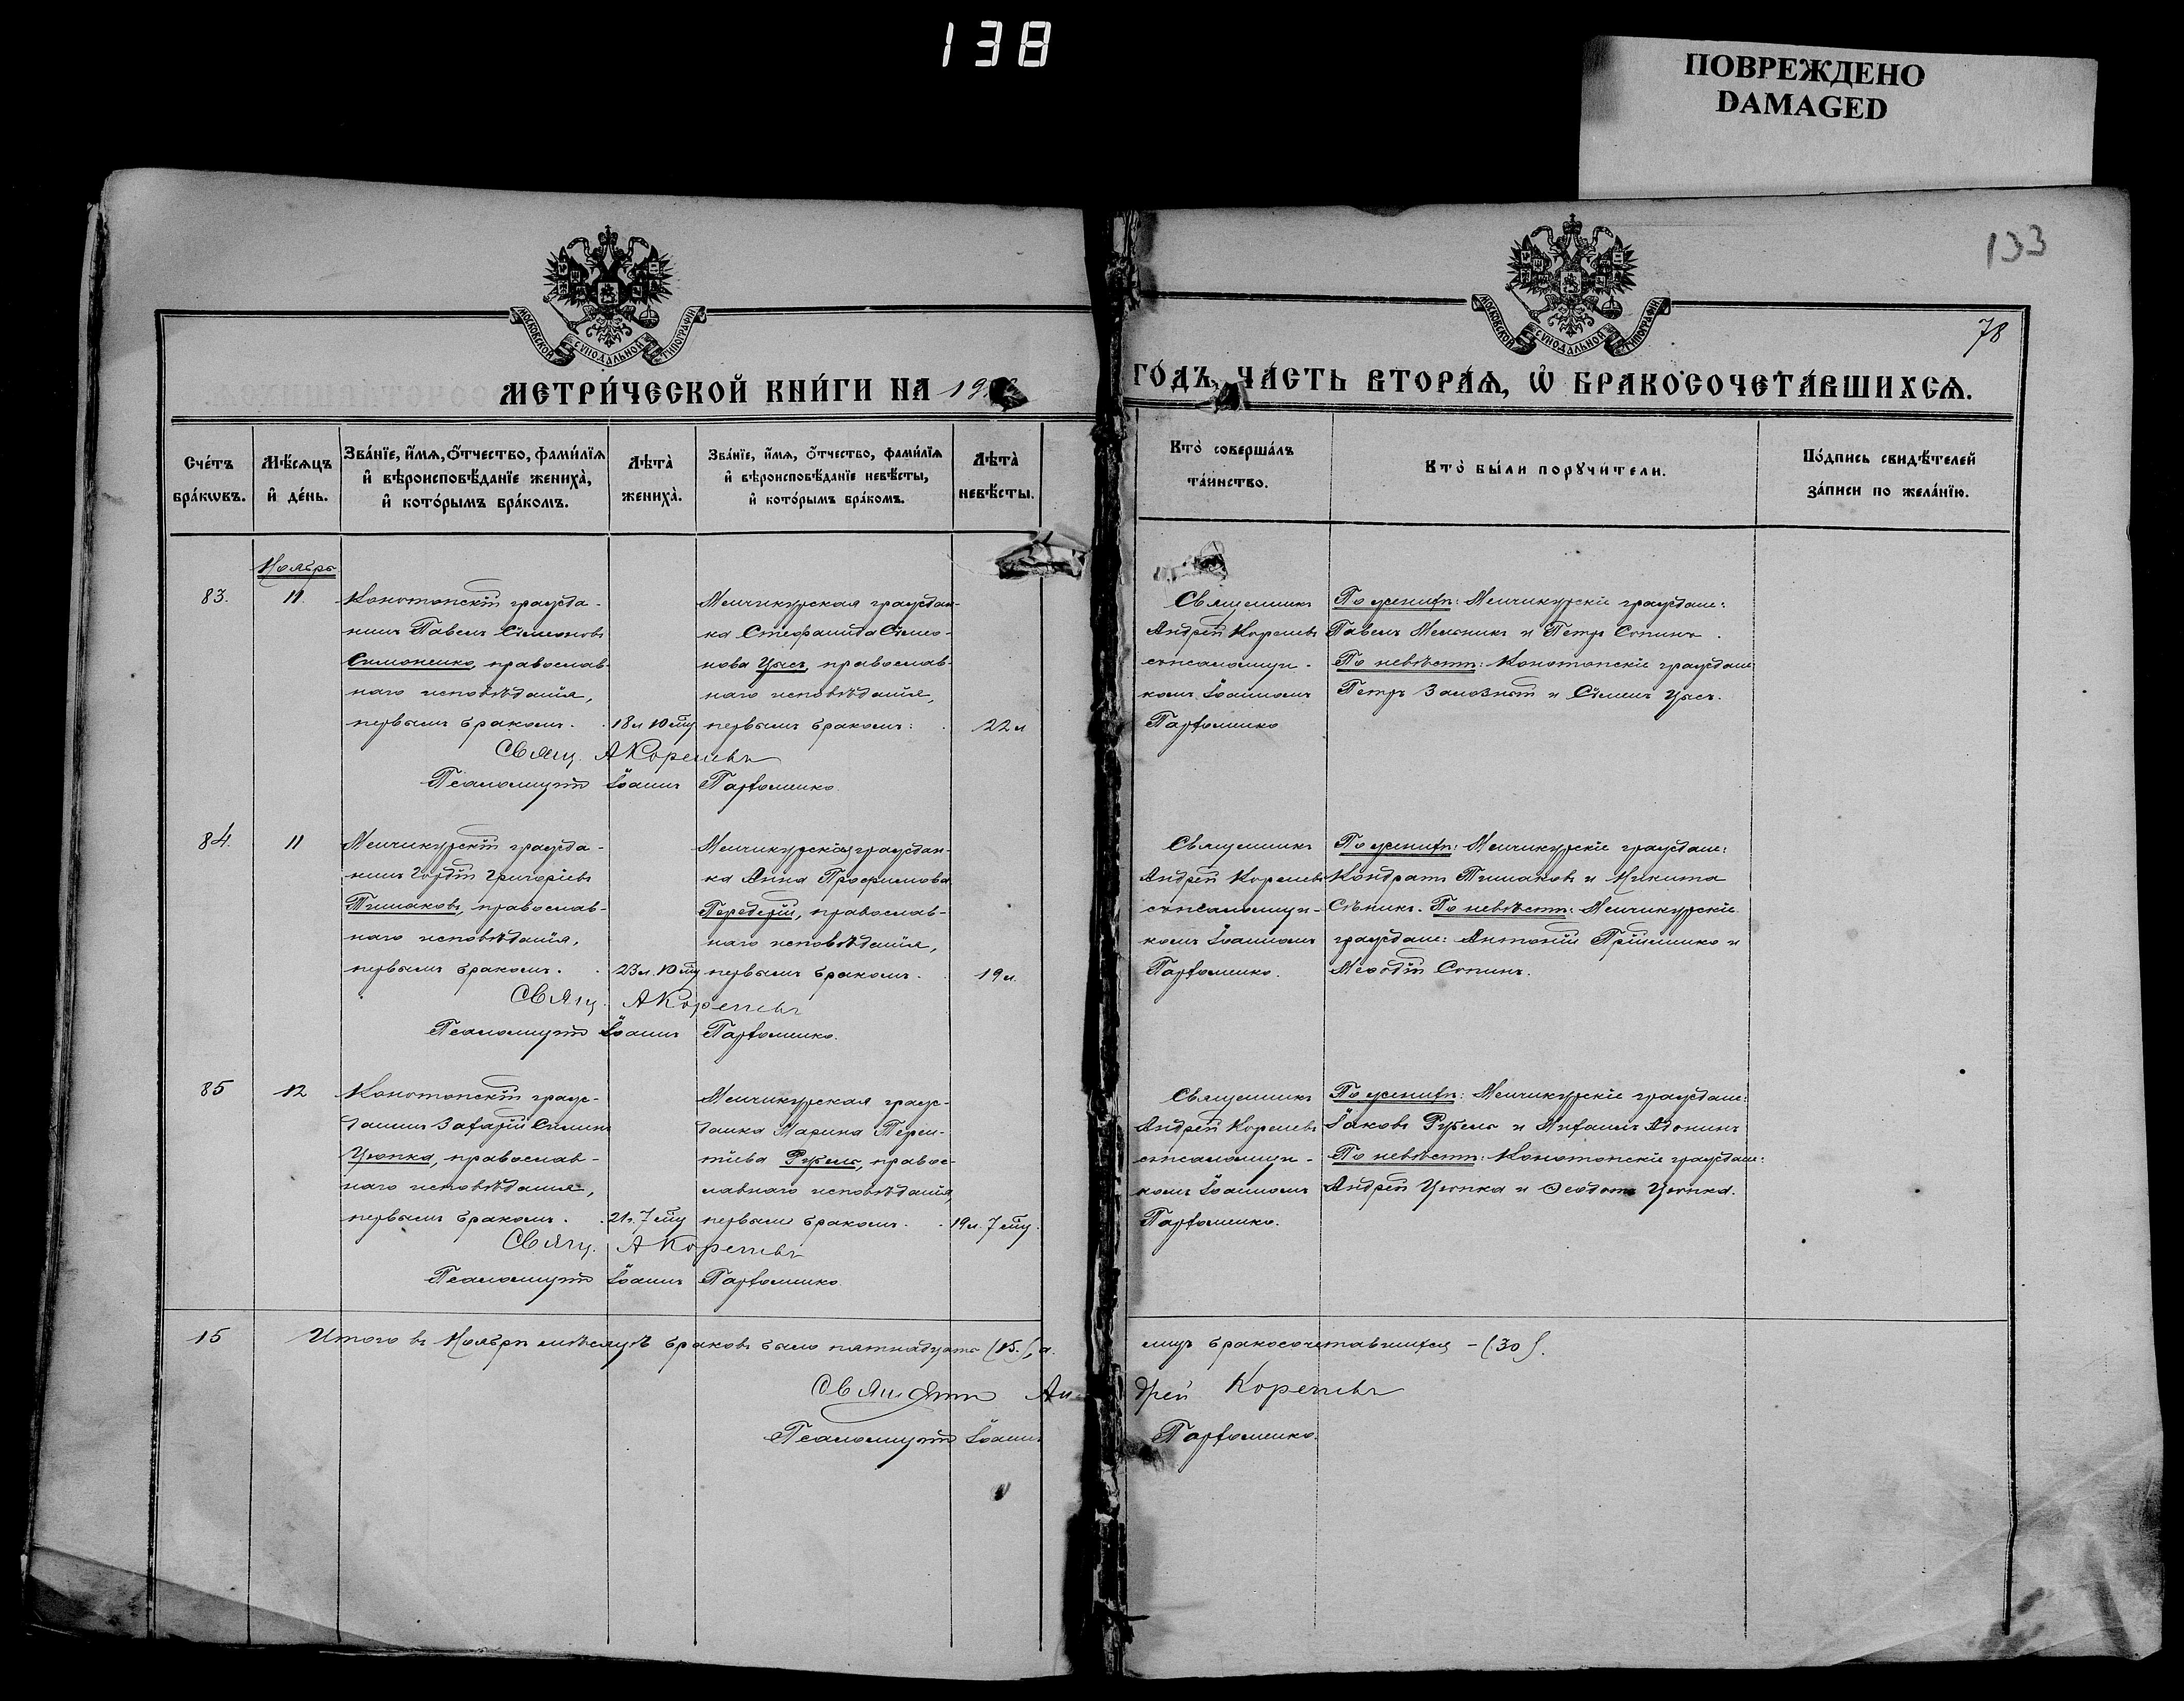 138
ПОВРЕЖДЕНО
DAMAGED
133
78
МОСКОВСКОЙ СУНОДАЛЬНОЙ ТИПОГРАФИИ
МОСКОВСКОЙ СУНОДАЛЬНОЙ ТИПОГРАФИИ
МЕТРИ́ЧЕСКОЙ КНИ́ГИ НА 19
ГО́ДЪ, ЧА́СТЬ ВТОРА́Ѧ, Ѡ҆ БРАКОСОЧЕТА́ВШИХСѦ.
Сче́тъ бра́кѡвъ.
Мѣ́сѧцъ и҆ де́нь.
Зва́нїе, и҆́мѧ, ѻ҆́тчество, фами́лїѧ и҆ вѣроисповѣ́данїе жениха̀, и҆ кото́рымъ бра́комъ.
Лѣта̀ жениха̀.
Зва́нїе, и҆́мѧ, ѻ҆́тчество, фами́лїѧ и҆ вѣроисповѣ́данїе невѣ́сты, и҆ кото́рымъ бра́комъ.
Лѣта̀ невѣ́сты.
Кто̀ соверша́лъ та́инство.
Кто̀ бы́ли порꙋчи́тели.
По́дпись свидѣ́телей за́писи по жела́нїю.
Ноябрь
83.
11.
Конотопскій гражда-
нинъ Павелъ Сѵмеоновъ
Симоненко, православ-
наго исповѣданія,
первымъ бракомъ.
18 л 10 мц
Менчикурская граждан-
ка Стефанида Сѵмео-
нова Цысь, православ-
наго исповѣданія,
первымъ бракомъ.
22 л
Священникъ
Андрей Корешевъ
съ псаломщи-
комъ Іоанномъ
Парфоменко
По женихѣ: Менчикурскіе граждане:
Павелъ Мельникъ и Петръ Сопинъ.
По невѣстѣ: Конотопскіе граждане
Петръ Заможный и Сѵмеонъ Цысь.
Свящ. А Корешевъ
Псаломщикъ Іоаннъ Парфоменко.
84.
11
Менчикурскій гражда-
нинъ Гордій Григоріевъ
Тимаковъ, православ-
наго исповѣданія,
первымъ бракомъ.
23 л. 10 мц
Менчикурская граждан-
ка Анна Трофимова
Передерій, православ-
наго исповѣданія,
первымъ бракомъ.
19 л.
Священникъ
Андрей Корешевъ
съ псаломщи-
комъ Іоанномъ
Парфоменко.
По женихѣ: Менчикурскіе граждане:
Кондратъ Тимаковъ и Никита
Сѣникъ. По невѣстѣ: Менчикурскіе
граждане: Антоній Пріименко и
Меѳодій Сопинъ.
Свящ. А Корешевъ
Псаломщикъ Іоаннъ Парфоменко.
85
12
Конотопскій граж-
данинъ Захарій Симинъ
Цюпка, православ-
наго исповѣданія,
первымъ бракомъ.
21 г. 7 мц
Менчикурская граж-
данка Марина Терен-
тіева Рубель, правос-
лавнаго исповѣданія,
первымъ бракомъ.
19 л. 7 мц.
Священникъ
Андрей Корешевъ
съ псаломщи-
комъ Іоанномъ
Парфоменко.
По женихѣ: Менчикурскіе граждане:
Іаковъ Рубель и Михаилъ Адонинъ
По невѣстѣ: Конотопскіе граждане:
Андрей Цюпка и Ѳеодотъ Цюпка.
Свящ. А Корешевъ
Псаломщикъ Іоаннъ Парфоменко.
15
Итого въ Ноябрѣ мѣсяцѣ браковъ было пятнадцать (15.), а
лицъ бракосочетавшихся – (30).
Священникъ Андрей Корешевъ
Псаломщикъ Іоаннъ Парфоменко.